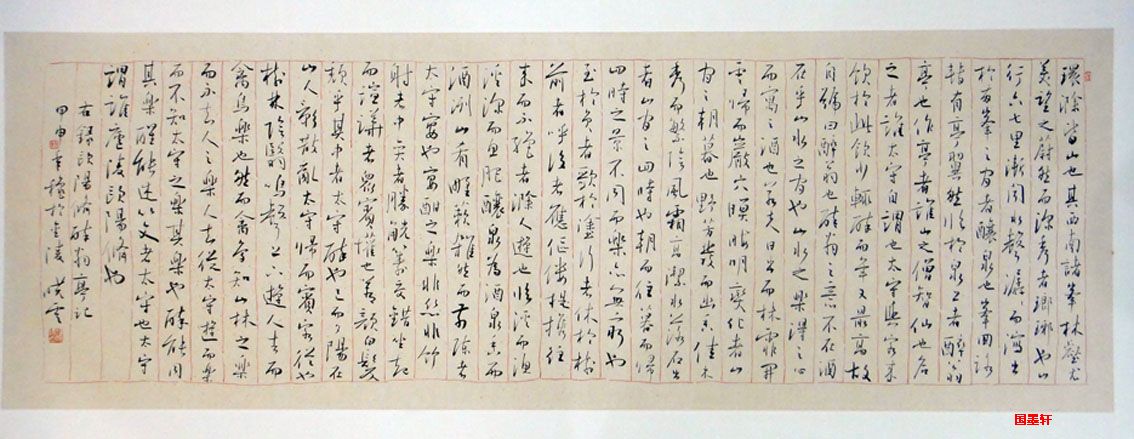 環滁皆山也其西南諸峯林壑尤
美望之蔚然而深秀者瑯琊也山
行六七里漸聞水聲潺潺而瀉出
於兩峯之間者釀泉也峯回路
轉有亭翼然臨於泉上者醉翁
亭也作亭者誰山之僧智仙也名
之者誰太守自謂也太守與客來
飲於此飲少輒醉而年又最高故
自號曰醉翁也醉翁之意不在酒
在乎山水之間也山水之樂得之心
而寓之酒也若夫日出而林霏開
雲歸而巖穴暝晦明變化者山
間之朝暮也野芳發而幽香佳木
秀而繁陰風霜高潔水落石出
者山間之四時也朝而往暮而歸
四時之景不同而樂亦無窮也
至於負者歌於塗行者休於樹
前者呼後者應傴僂提攜往
來而不絕者滁人遊也臨溪而漁
溪深而魚肥釀泉為酒泉香而
酒洌山肴野蔌雜然而前陳者
太守宴也宴酣之樂非絲非竹
射者中奕者勝觥籌交錯坐起
而諠譁者眾賓懽也蒼顏白髮
頹乎其中者太守醉也已而夕陽在
山人影散亂太守歸而賓客從也
樹林陰翳鳴聲上下遊人去而
禽鳥樂也然而禽鳥知山林之樂
而不知人之樂人知從太守遊而樂
而不知太守之樂其樂也醉能同
其樂醒能述以文者太守也太守
謂誰廬陵歐陽脩也
右錄歐陽脩醉翁亭記
甲申
國墨轩